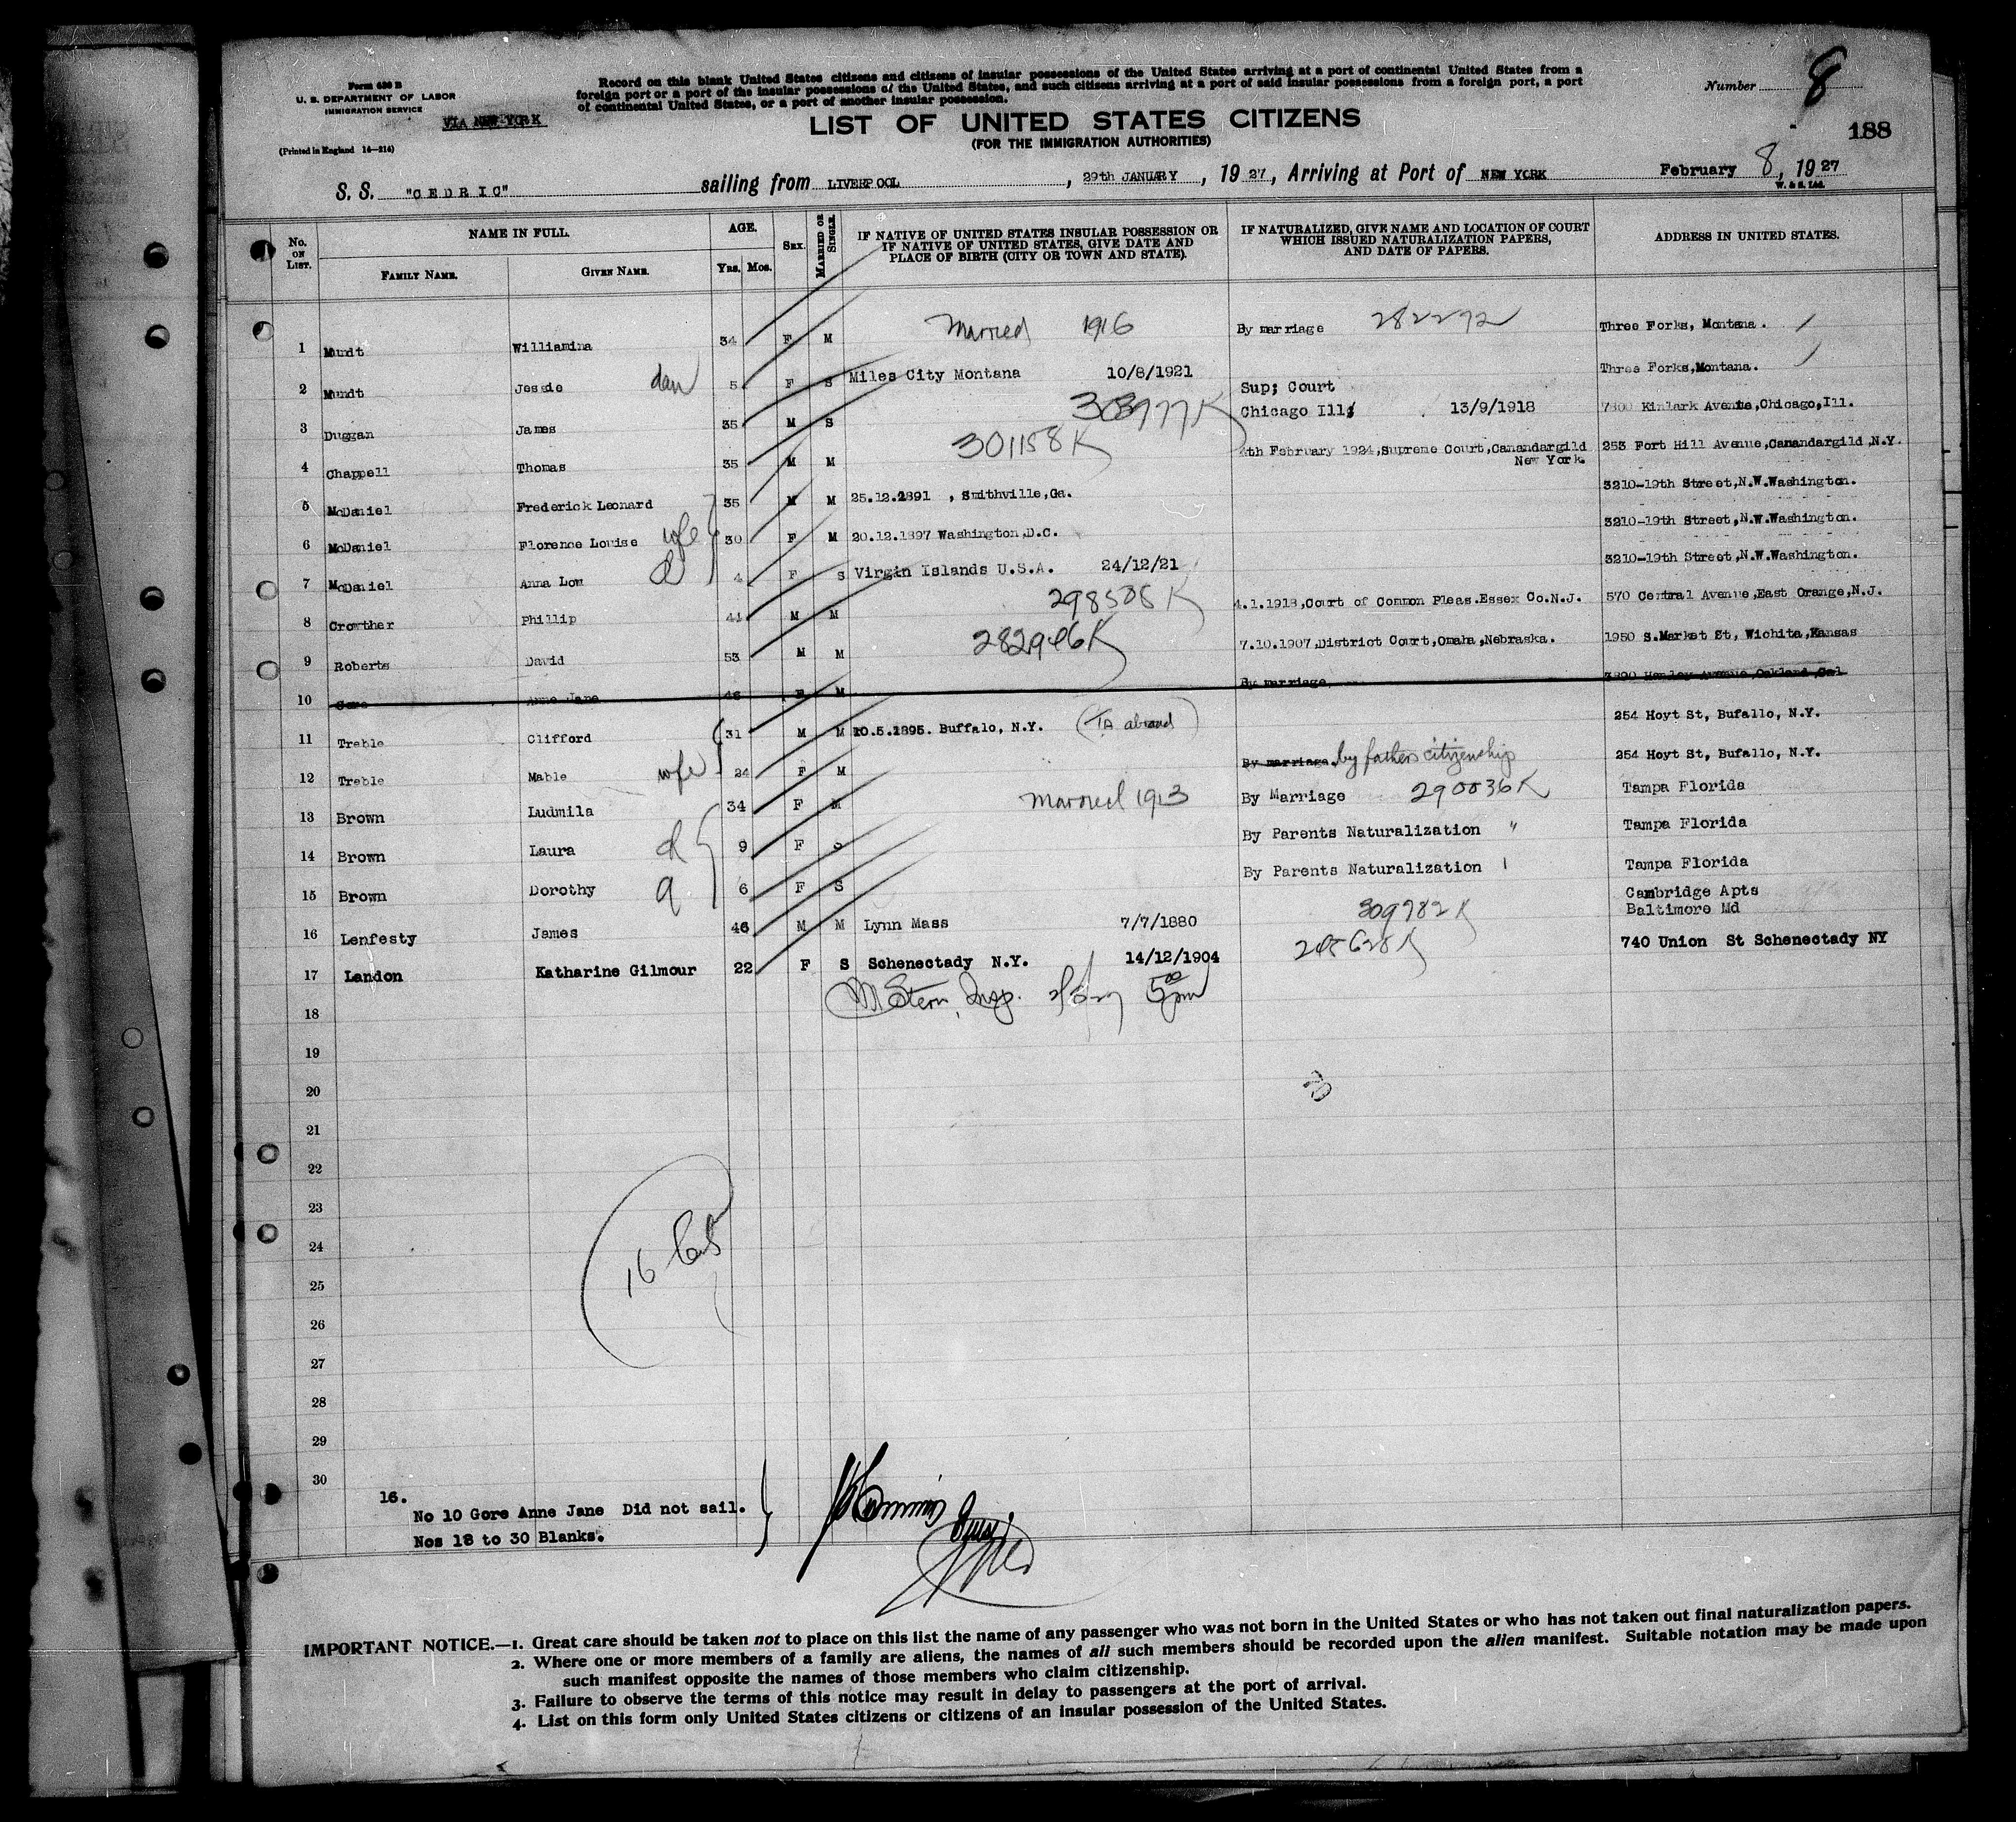 Form 630 B
U. S. DEPARTMENT OF LABOR
IMMIGRATION SERVICE
VIA NEW YORK
(Printed in England 14—214)
Record on this blank United States citizens and citizens of insular possessions of the United States arriving at a port of continental United States from a
foreign port or a port of the insular possessions of the United States, and such citizens arriving at a port of said insular possessions from a foreign port, a port
of continental United States, or a port of another insular possession.
Number 8
LIST OF UNITED STATES CITIZENS
(FOR THE IMMIGRATION AUTHORITIES)
188
S. S. "CEDRIC" sailing from LIVERPOOL, 29th JANUARY, 1927, Arriving at Port of NEW YORK February 8, 1927
W. & S. Ltd.
No. ON LIST. NAME IN FULL. FAMILY NAME. GIVEN NAME. AGE. Yrs. Mos. SEX. MARRIED OR SINGLE. IF NATIVE OF UNITED STATES INSULAR POSSESSION OR IF NATIVE OF UNITED STATES, GIVE DATE AND PLACE OF BIRTH (CITY OR TOWN AND STATE). IF NATURALIZED, GIVE NAME AND LOCATION OF COURT WHICH ISSUED NATURALIZATION PAPERS, AND DATE OF PAPERS. ADDRESS IN UNITED STATES.
1 Mundt Williamina 34 F M Married 1916 By marriage 282272 Three Forks, Montana.
2 Mundt Jessie dau 5 F S Miles City Montana 10/8/1921 Three Forks,Montana.
3 Duggan James 35 M S 303977K Sup; Court Chicago Ill; 13/9/1918 7800 Kinlark Avenue,Chicago,Ill.
4 Chappell Thomas 35 M M 301158K 4th February 1924,Supreme Court,Canandargild New York. 253 Fort Hill Avenue,Canandargild,N.Y.
5 McDaniel Frederick Leonard 35 M M 25.12.1891 , Smithville,Ga. 3210-19th Street,N.W.Washington.
6 McDaniel Florence Louise wfe 30 F M 20.12.1897 Washington,D.C. 3210-19th Street,N.W.Washington.
7 McDaniel Anna Lou d 4 F S Virgin Islands U.S.A. 24/12/21 3210-19th Street,N.W.Washington.
8 Crowther Phillip 41 M M 298508K 4.1.1918,Court of Common Pleas.Essex Co.N.J. 570 Central Avenue,East Orange,N.J.
9 Roberts David 53 M M 282946K 7.10.1907,District Court,Omaha,Nebraska. 1950 S.Market St, Wichita,Kansas
10 Gore Anne Jane 46 F M By marriage 3890 Avenue,Oakland,Cal
11 Treble Clifford 31 M M 10.5.1895. Buffalo, N.Y. (TA abroad) 254 Hoyt St, Bufallo, N.Y.
12 Treble Mable wfe 24 F M By marriage. by father citizenship 254 Hoyt St, Bufallo, N.Y.
13 Brown Ludmila 34 F M Married 1913 By Marriage 290036K Tampa Florida
14 Brown Laura d 9 F S By Parents Naturalization " Tampa Florida
15 Brown Dorothy d 6 F S By Parents Naturalization Tampa Florida
16 Lenfesty James 46 M M Lynn Mass 7/7/1880 309782K Cambridge Apts Baltimore Md
17 Landon Katharine Gilmour 22 F S Schenectady N.Y. 14/12/1904 740 Union St Schenectady NY
18 M Stern, Insp. 5 00 pm
19
20
21
22
23
24
25
26
27
28
29
30
16
16.
No 10 Gore Anne Jane Did not sail.
Nos 18 to 30 Blanks.
IMPORTANT NOTICE.—1. Great care should be taken not to place on this list the name of any passenger who was not born in the United States or who has not taken out final naturalization papers.
2. Where one or more members of a family are aliens, the names of all such members should be recorded upon the alien manifest. Suitable notation may be made upon
such manifest opposite the names of those members who claim citizenship.
3. Failure to observe the terms of this notice may result in delay to passengers at the port of arrival.
4. List on this form only United States citizens or citizens of an insular possession of the United States.